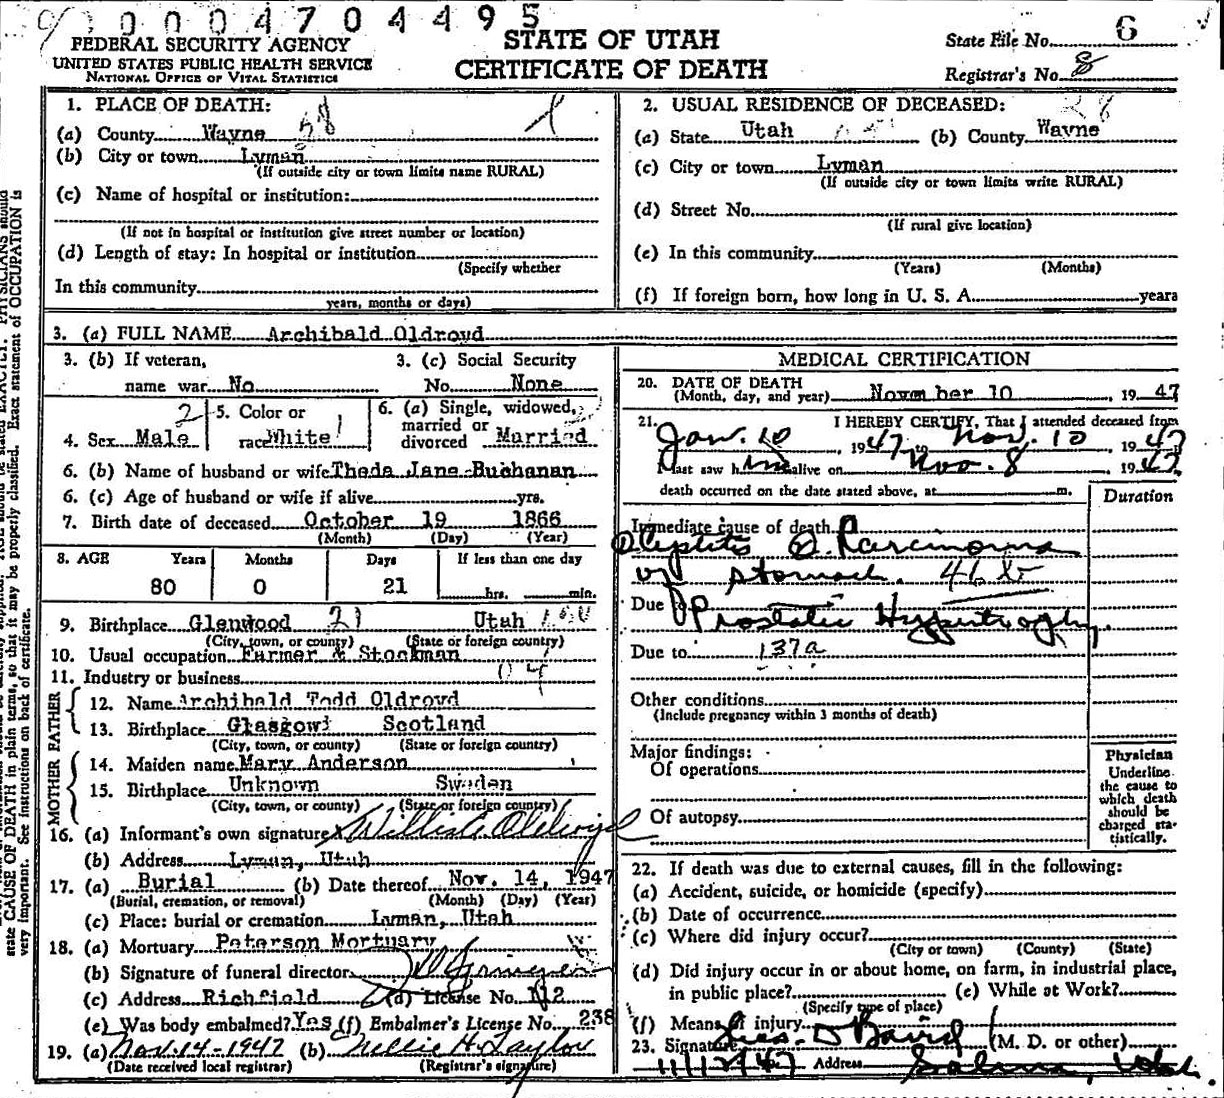 00004704495
FEDERAL SECURITY AGENCY
UNITED STATES PUBLIC HEALTH SERVICE
NATIONAL OFFICE OF VITAL STATISTICS
STATE OF UTAH
CERTIFICATE OF DEATH
State File No. 6
Registrar's No. 8
1. PLACE OF DEATH:
(a) County Wayne
(b) City or town Lyman
(If outside city or town limits name RURAL)
(c) Name of hospital or institution:
(If not in hospital or institution give street number or location)
(d) Length of stay: In hospital or institution
(Specify whether
In this community
years, months or days)
2. USUAL RESIDENCE OF DECEASED:
(a) State Utah (b) County Wayne
(c) City or town Lyman
(If outside city or town limits write RURAL)
(d) Street No.
(If rural give location)
(e) In this community
(Years) (Months)
(f) If foreign born, how long in U. S. A. years
3. (a) FULL NAME Archibald Oldroyd
3. (b) If veteran, 3. (c) Social Security
name war No No. None
4. Sex Male 2 5. Color or race White 1 6. (a) Single, widowed, married or divorced Married
6. (b) Name of husband or wife Theda Jane Buchanan
6. (c) Age of husband or wife if alive yrs.
7. Birth date of deceased October 19 1866
(Month) (Day) (Year)
8. AGE Years Months Days If less than one day
80 0 21 hrs. min.
9. Birthplace Glenwood 21 Utah
(City, town, or county) (State or foreign country)
10. Usual occupation Farmer & Stockman
11. Industry or business
FATHER
12. Name Archibald Todd Oldroyd
13. Birthplace Glasgow Scotland
(City, town, or county) (State or foreign country)
MOTHER
14. Maiden name Mary Anderson
15. Birthplace Unknown Sweden
(City, town, or county) (State or foreign country)
16. (a) Informant's own signature
(b) Address Lyman, Utah
17. (a) Burial (b) Date thereof Nov. 14, 1947
(Burial, cremation, or removal) (Month) (Day) (Year)
(c) Place: burial or cremation Lyman, Utah
18. (a) Mortuary Peterson Mortuary
(b) Signature of funeral director
(c) Address Richfield (d) License No. 112
(e) Was body embalmed? Yes (f) Embalmer's License No. 238
19. (a) Nov. 14-1947 (b) Nellie H. Taylor
(Date received local registrar) (Registrar's signature)
MEDICAL CERTIFICATION
20. DATE OF DEATH
(Month, day, and year) November 10 1947
21. I HEREBY CERTIFY, That I attended deceased from
Jan. 10, 1947, to Nov. 10, 1947
I last saw him alive on Nov. 8, 1947
death occurred on the date stated above, at m.
Duration
Immediate cause of death
Carcinoma
of stomach.
Due to Prostatic Hypertrophy.
Due to 137a
Other conditions
(Include pregnancy within 3 months of death)
Major findings:
Of operations
Of autopsy
Physician
Underline
the cause to
which death
should be
charged sta-
tistically.
22. If death was due to external causes, fill in the following:
(a) Accident, suicide, or homicide (specify)
(b) Date of occurrence
(c) Where did injury occur?
(City or town) (County) (State)
(d) Did injury occur in or about home, on farm, in industrial place,
in public place? (e) While at Work?
(Specify type of place)
(f) Means of injury
23. Signature (M. D. or other)
11/12/47 Address Salina, Utah.
state CAUSE OF DEATH in plain terms, so that it may be properly classified. Exact statement of OCCUPATION is
very important. See instructions on back of certificate.